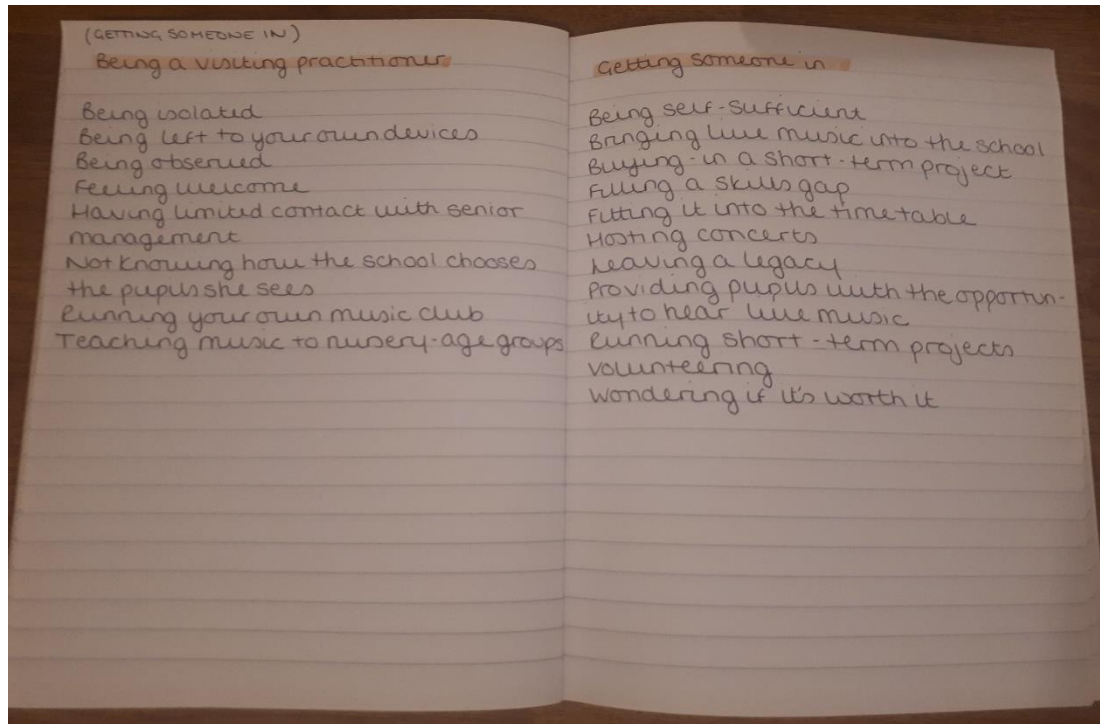 (GETTING SOMEONE IN)
Being a visiting practitioner
Being isolated
Being left to your own devices
Being observed
Feeling welcome
Having limited contact with senior
management
Not knowing how the school chooses
the pupils she sees
Running your own music club
Teaching music to nursery-age groups
Getting someone in
Being self-sufficient
Bringing live music into the school
Buying-in a short-term project
Filling a skills gap
Fitting it into the timetable
Hosting concerts
Leaving a legacy
Providing pupils with the opportun-
ity to hear live music
Running short-term projects
Volunteering
Wondering if it's worth it